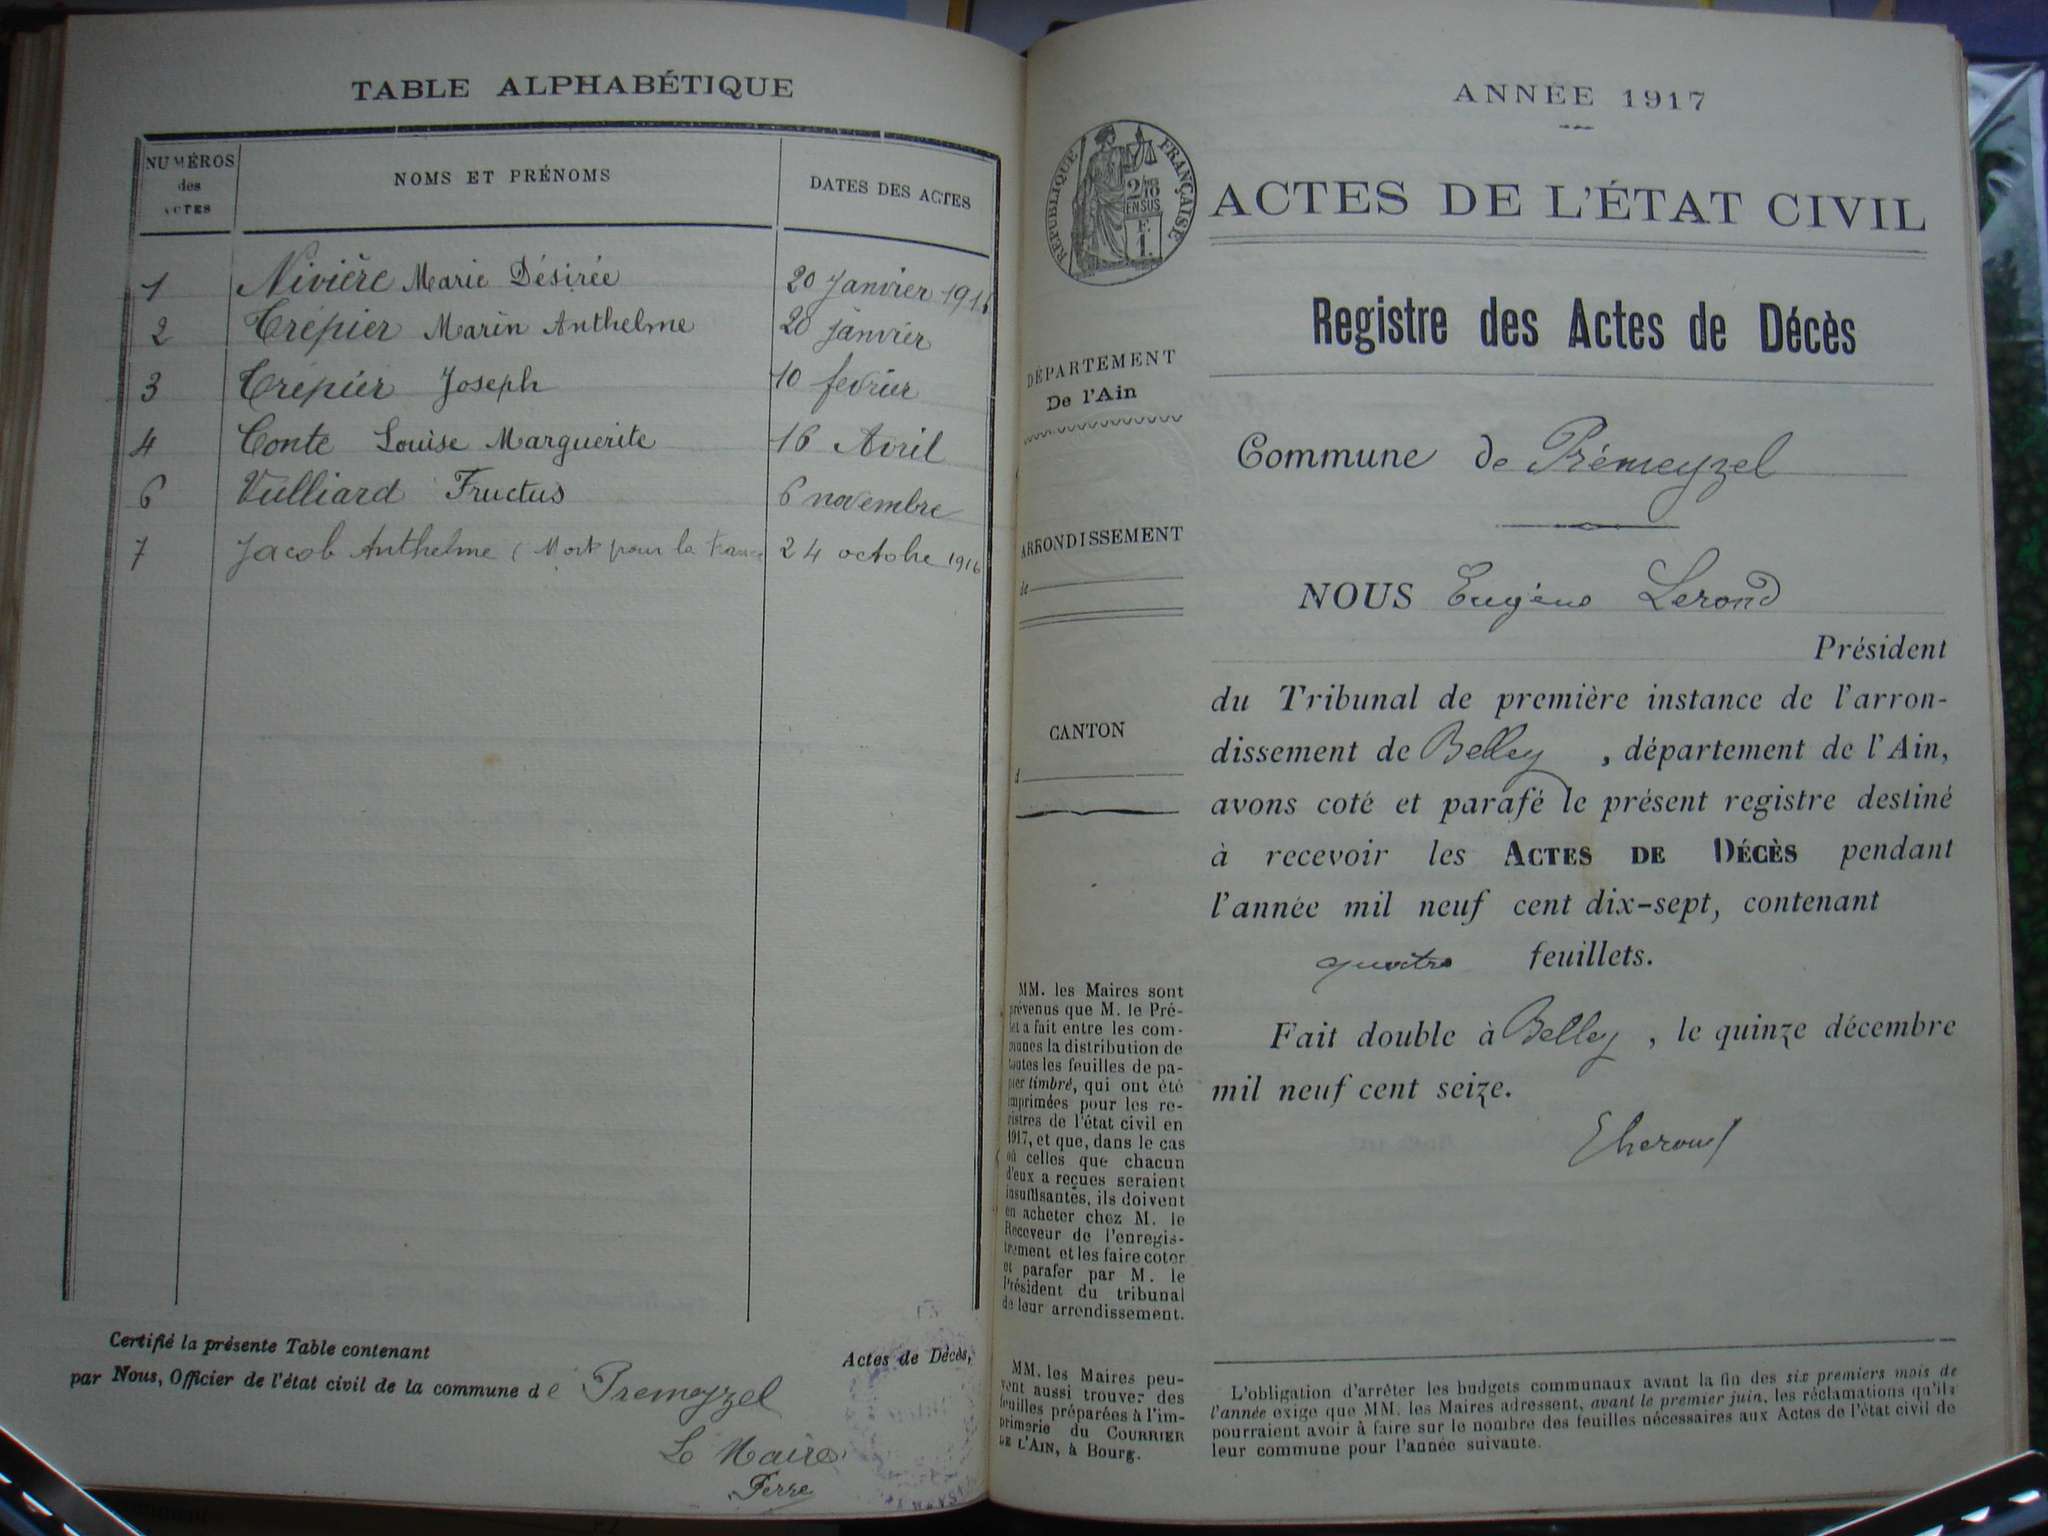 TABLE ALPHABÉTIQUE
NUMÉROS des ACTES
NOMS ET PRÉNOMS
DATES DES ACTES
1 Nivière Marie Désirée 20 Janvier 1916
2 Trépier Marin Anthelme 20 janvier
3 Trépier Joseph 10 fevrier
4 Conte Louise Marguerite 16 Avril
6 Vulliard Fructus 6 novembre
7 Jacob Anthelme (Mort pour la France 24 octobre 1916
Certifié la présente Table contenant Actes de Décès,
par Nous, Officier de l'état civil de la commune de Premeyzel
Le Maire
Perre
ANNÉE 1917
RÉPUBLIQUE FRANÇAISE
2/10 EN SUS
F.
1.
ACTES DE L'ÉTAT CIVIL
Registre des Actes de Décès
DÉPARTEMENT
De l'Ain
Commune de Prémeyzel
ARRONDISSEMENT
de
NOUS Eugène Lerond
Président
du Tribunal de première instance de l'arron-
dissement de Belley, département de l'Ain,
avons coté et parafé le présent registre destiné
à recevoir les ACTES DE DÉCÈS pendant
l'année mil neuf cent dix-sept, contenant
quatre feuillets.
Fait double à Belley, le quinze décembre
mil neuf cent seize.
CANTON
d
MM. les Maires sont
prévenus que M. le Pré-
fet a fait entre les com-
munes la distribution de
toutes les feuilles de pa-
pier timbré, qui ont été
imprimées pour les re-
gistres de l'état civil en
1917, et que, dans le cas
où celles que chacun
d'eux a reçues seraient
insuffisantes, ils doivent
en acheter chez M. le
Receveur de l'enregis-
trement et les faire coter
et parafer par M. le
Président du tribunal
de leur arrondissement.
MM. les Maires peu-
vent aussi trouver des
feuilles préparées à l'im-
primerie du COURRIER
DE L'AIN, à Bourg.
L'obligation d'arrêter les budgets communaux avant la fin des six premiers mois de
l'année exige que MM. les Maires adressent, avant le premier juin, les réclamations qu'ils
pourraient avoir à faire sur le nombre des feuilles nécessaires aux Actes de l'état civil de
leur commune pour l'année suivante.